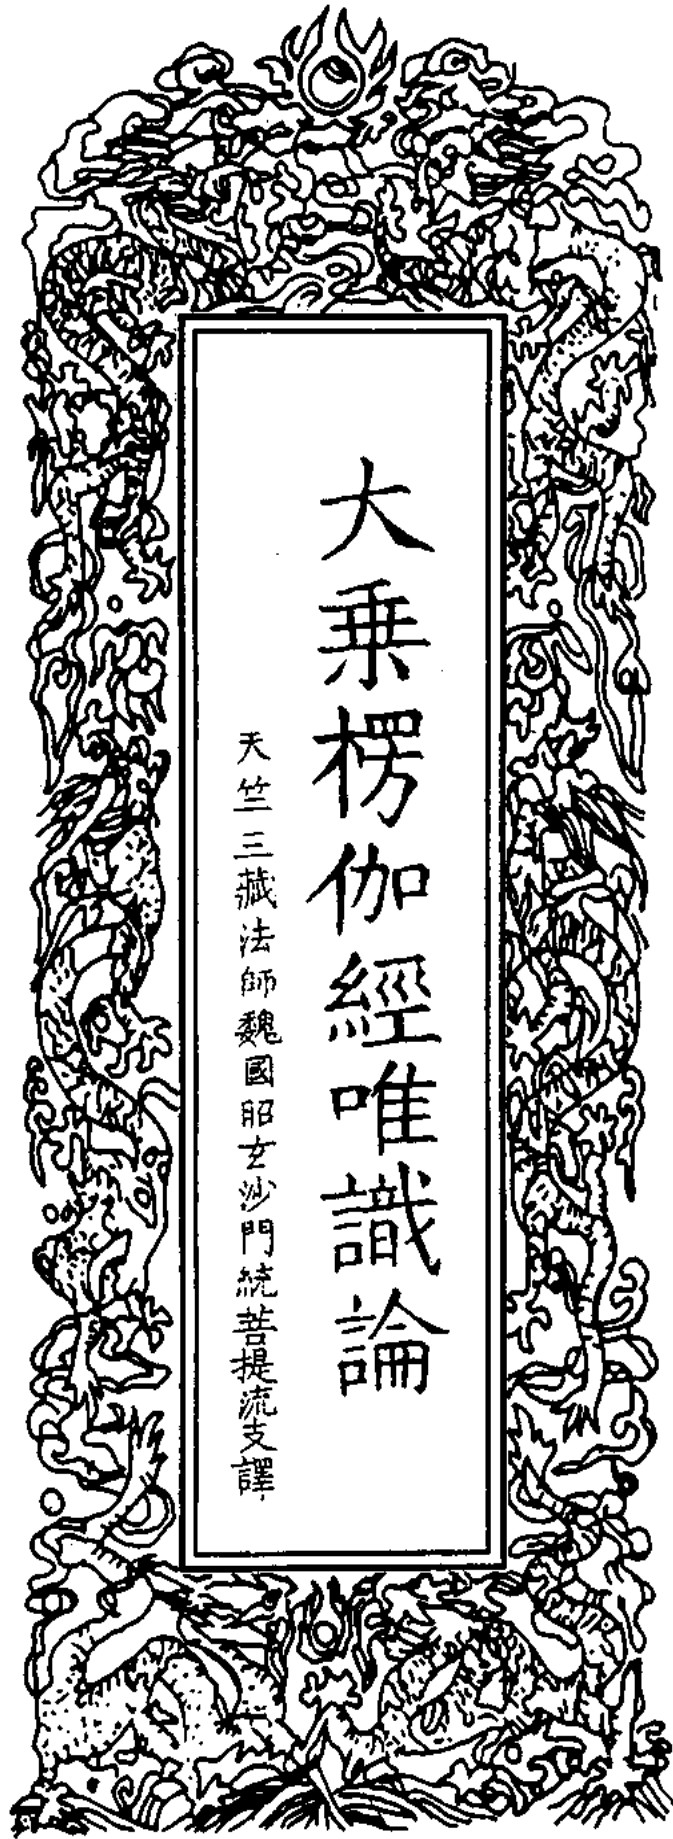 大乗楞伽經唯識論
天竺三藏法師魏國昭玄沙門統菩提流支譯